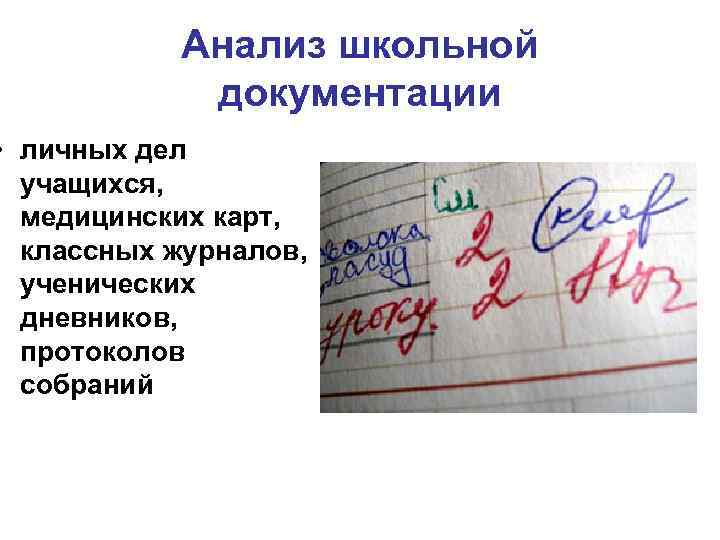 Анализ школьной
документации
• личных дел
учащихся,
медицинских карт,
классных журналов,
ученических
дневников,
протоколов
собраний
См
2
уроку. 2